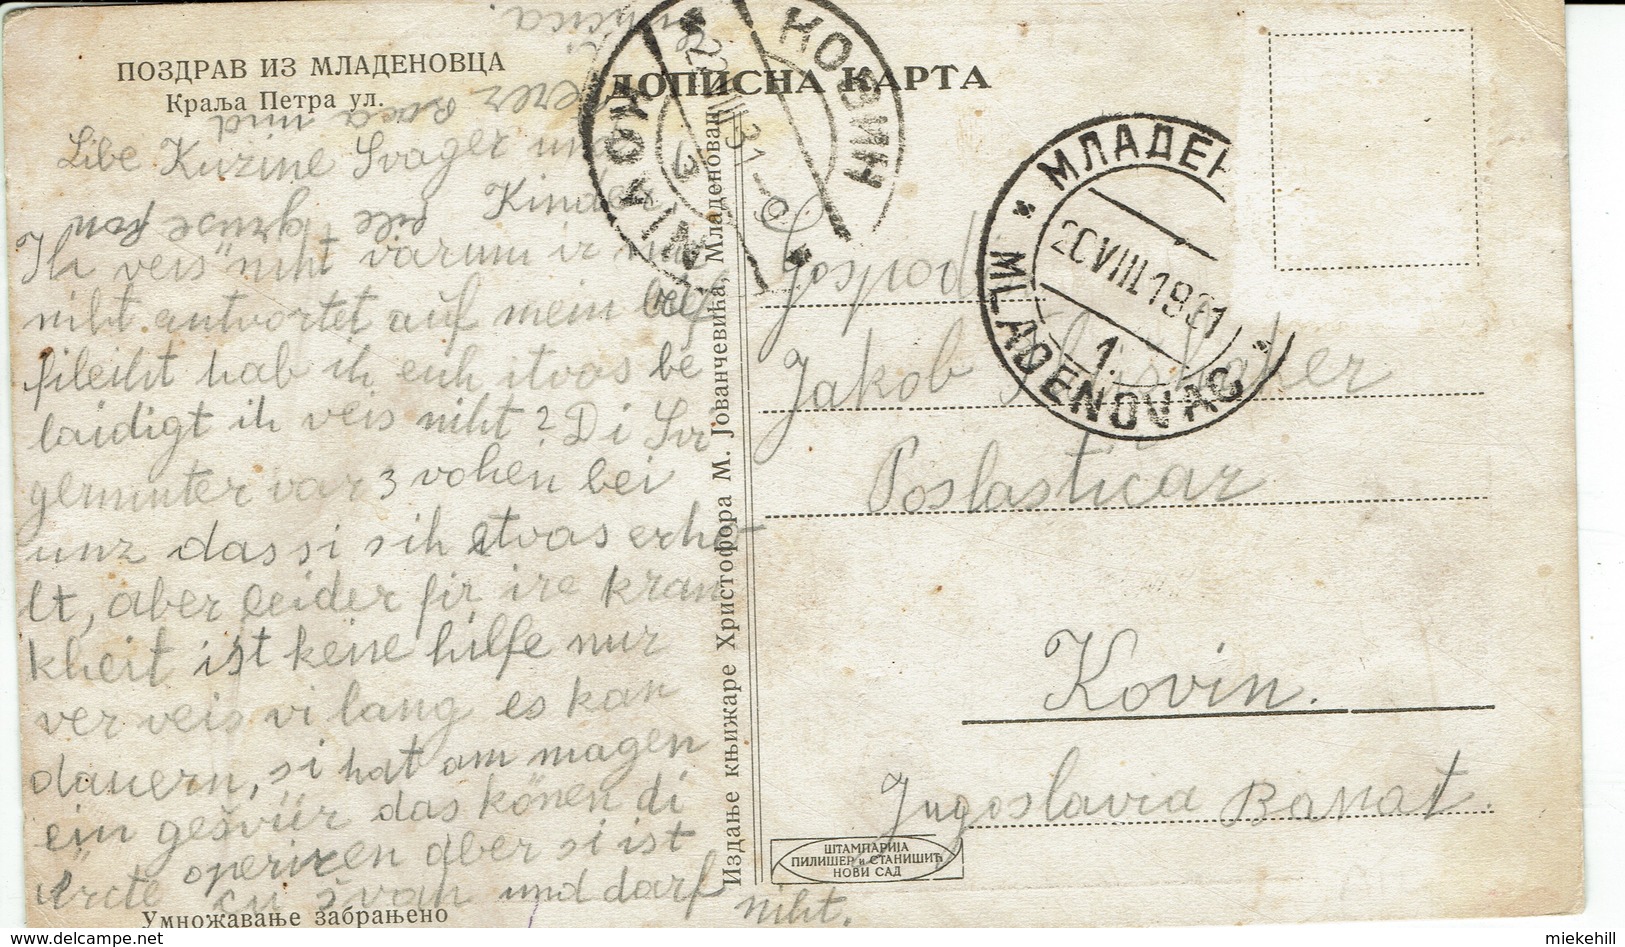 ПОЗДРАВ ИЗ МЛАДЕНОВЦА
Краља Петра ул.
ДОПИСНА КАРТА
Libe Kuzine Svager und
Kinder,
Ihr veis niht varum ir mir
niht antvortet auf mein brif
fileiht hab ih euh etvas be
laidigt ih veis niht? Di Svi
germuter var 3 vohen bei
unz das si sih etvas erho-
lt, aber leider fir ire kran
kheit ist keine hilfe nur
ver veis vi lang es kan
dauern, si hat am magen
ein gešviir das könen di
ärcte operiren aber si ist
cu švah und darf niht.
file grüse fon
Умножавање забрањено
Издање књижаре Христофора М. Јованчевића, Младеновац
КОВИН
KOVIN
22 VIII 31-9
МЛАДЕН
20 VIII 1931
1.
MLADENOVAC
Gospod
Jakob
Poslasticar
Kovin.
Jugoslavia Banat.
ШТАМПАРИЈА
ПИЛИШЕР и СТАНИШИЋ
НОВИ САД
miekehill